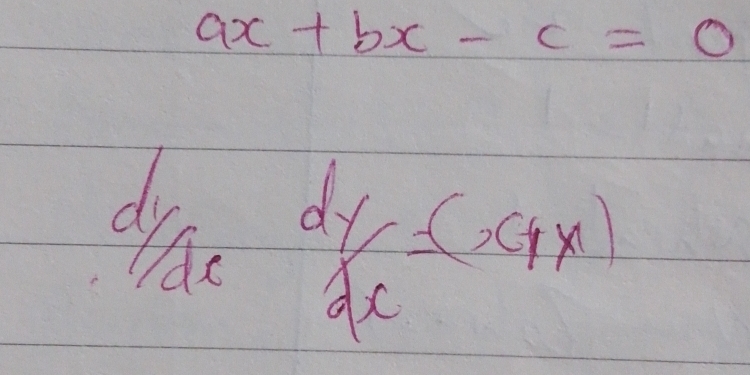 ax + bx - c = 0
dy/dx dy/dx =(x+x)